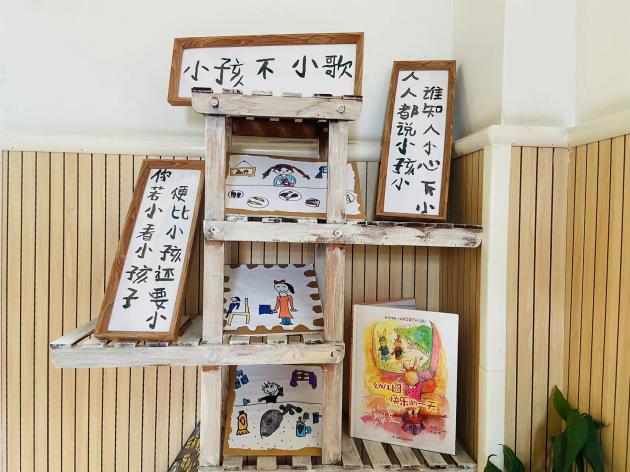 小孩不小歌
人人都说小孩小
谁知人小心不小
你若小看小孩子
便比小孩还要小
幼儿园
快乐的一天